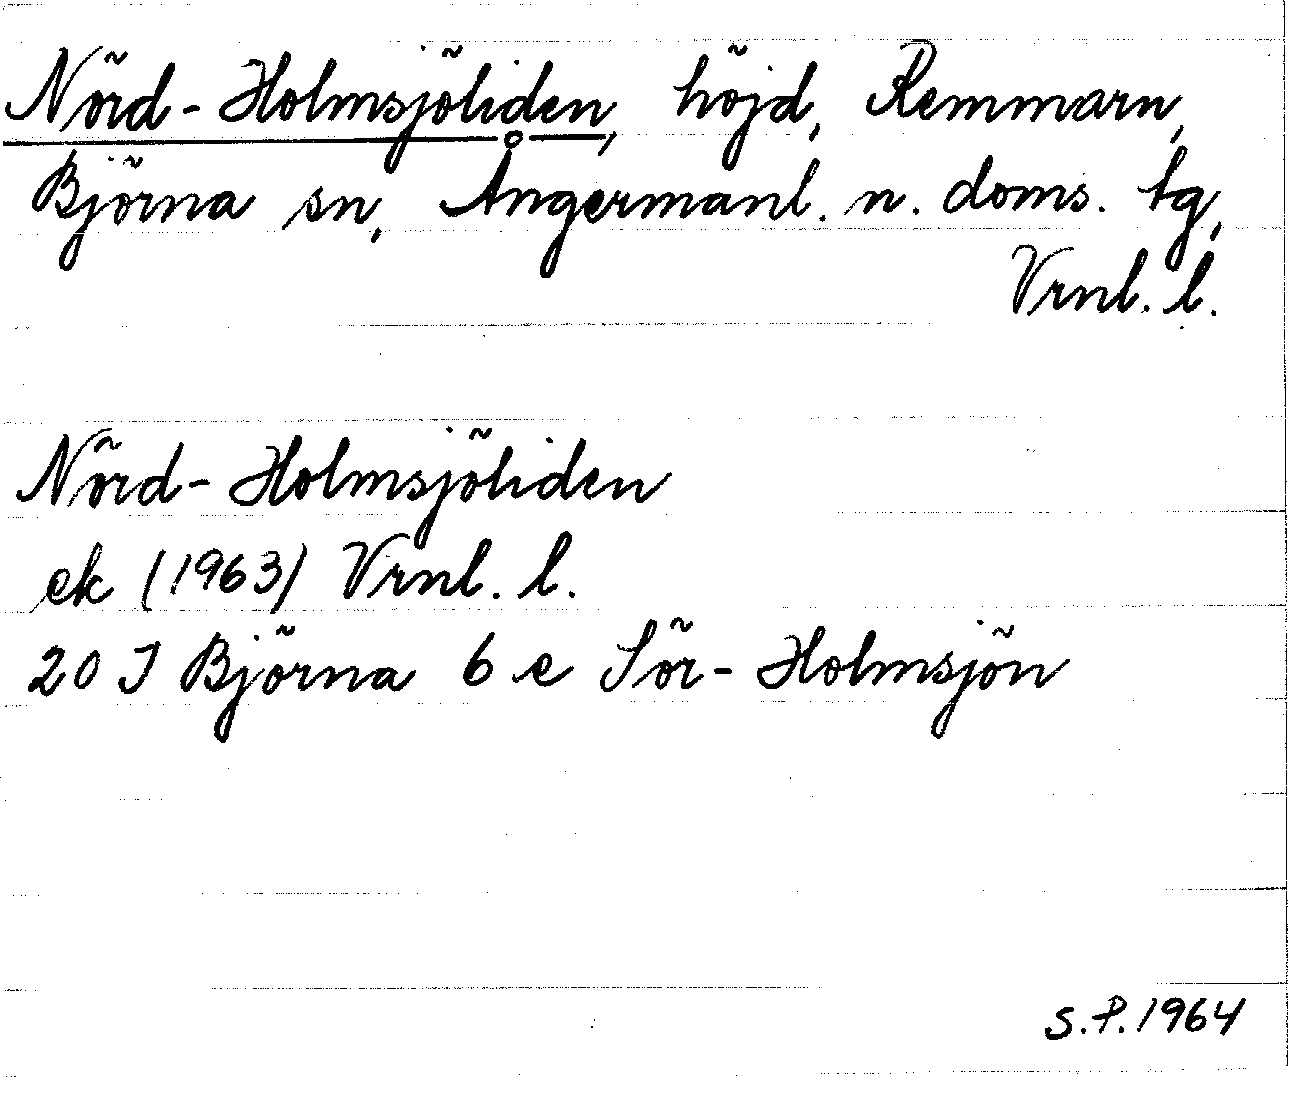 Nörd-Holmsjöliden, höjd, Remmarn,
Björna sn, Ångermanl. n. doms. tg,
Vrnl. l.
Nörd-Holmsjöliden
ek (1963) Vrnl. l.
20 J Björna 6 e Sör-Holmsjön
S.P. 1964